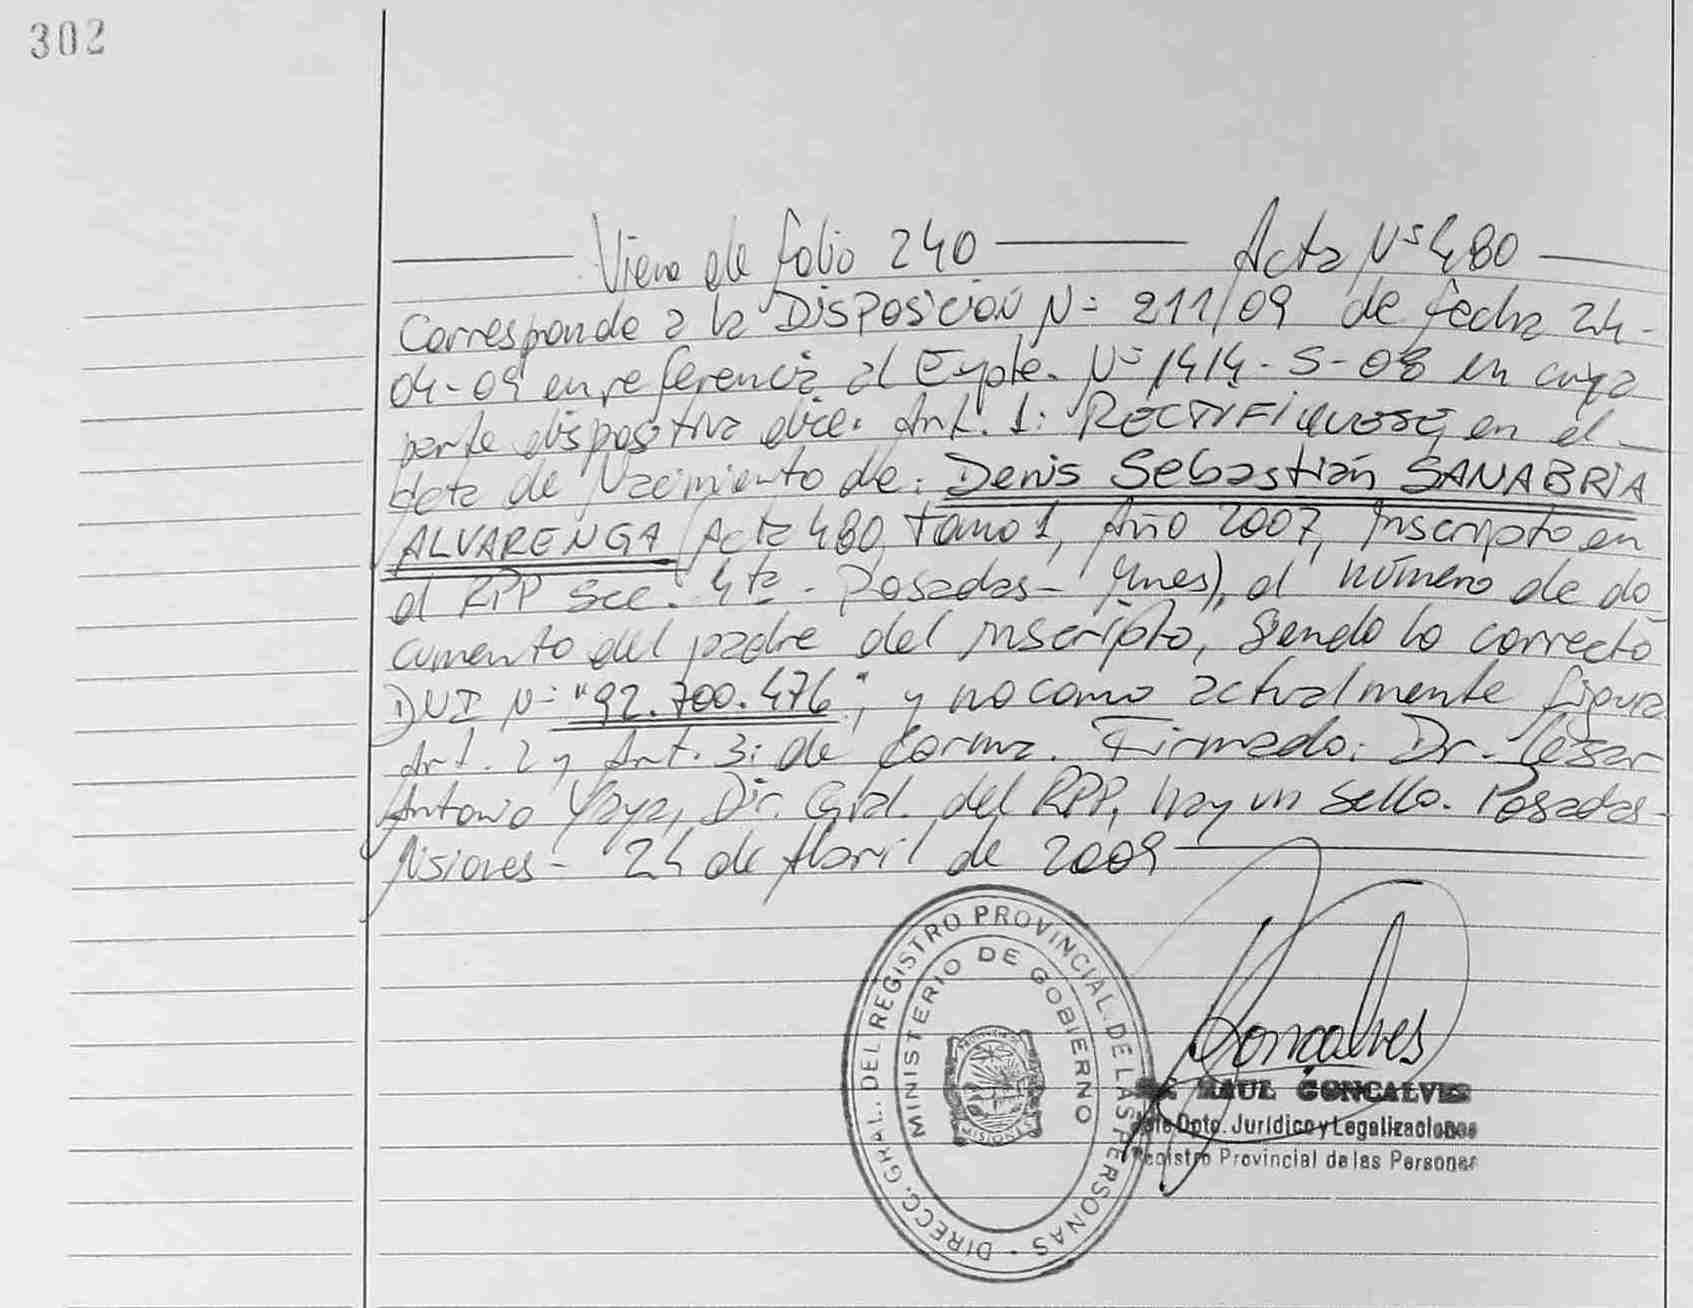 302
Viene de folio 240 Acta Nº 480
Corresponde a la DISPOSICIÓN Nº 211/09 de fecha 24-
04-09 en referencia al Expte. Nº 1414-S-08 en cuya
parte dispositiva dice: Art. 1: RECTIFIQUESE, en el
Acta de Nacimiento de: Denis Sebastián SANABRIA
ALVARENGA, Acta 480, Tomo 1, Año 2007, Inscripto en
el RPP Sec. 4ta - Posadas - Mnes), el número de do
cumento del padre del inscripto, siendo lo correcto
DNI Nº "92.700.476", y no como actualmente figura
Art. 2 y Art. 3: de forma. Firmado: Dr. César
Antonio Yaya, Dir. Gral. del RPP, hay un sello. Posadas-
Misiones - 24 de Abril de 2009
DIRECC. GRAL. DEL REGISTRO PROVINCIAL DE LAS PERSONAS
MINISTERIO DE GOBIERNO
MISIONES
Goncalves
RAUL GONCALVES
Jefe Dpto. Jurídico y Legalizaciones
Registro Provincial de las Personas